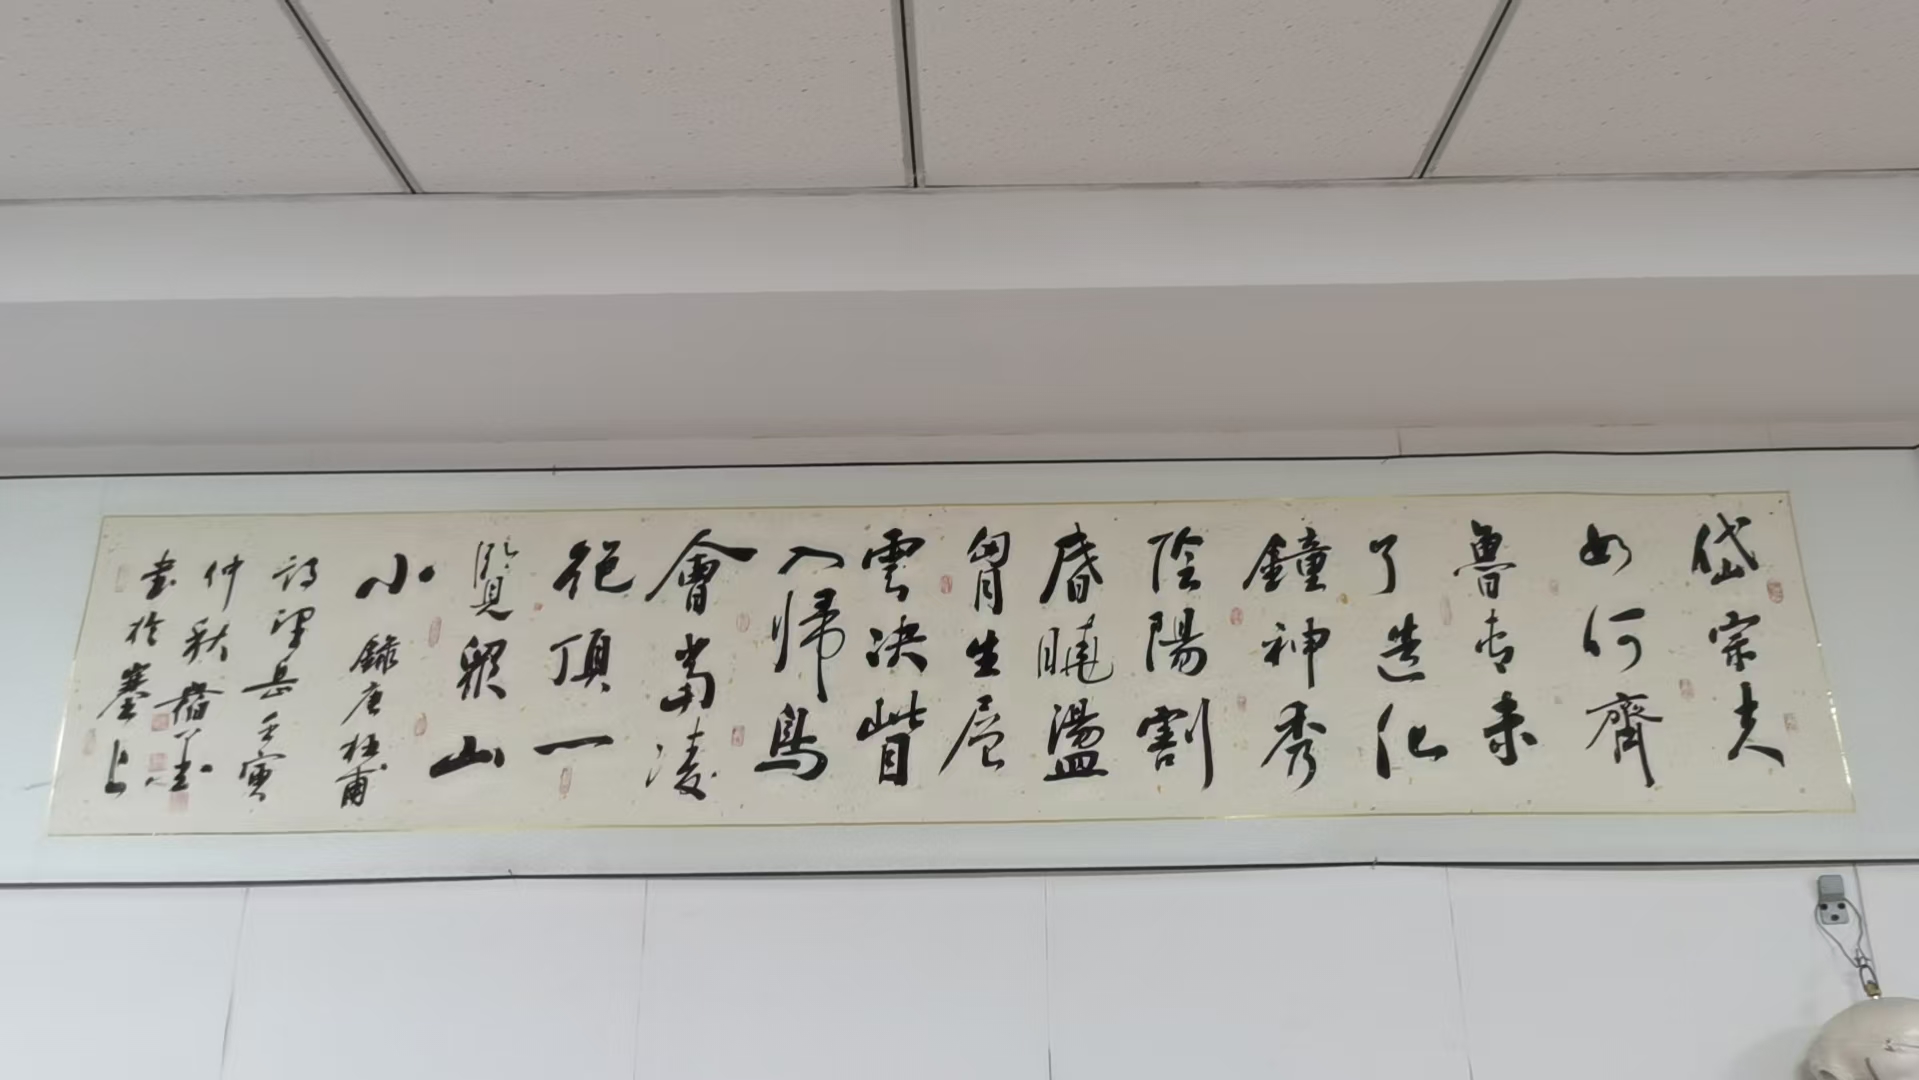 岱宗夫
如何齊
魯青未
了造化
鐘神秀
陰陽割
昏曉盪
胷生层
雲决眥
入帰鳥
會當凌
絕頂一
覽眾山
小錄唐杜甫
詩望岳壬寅
仲秋
書於塞上